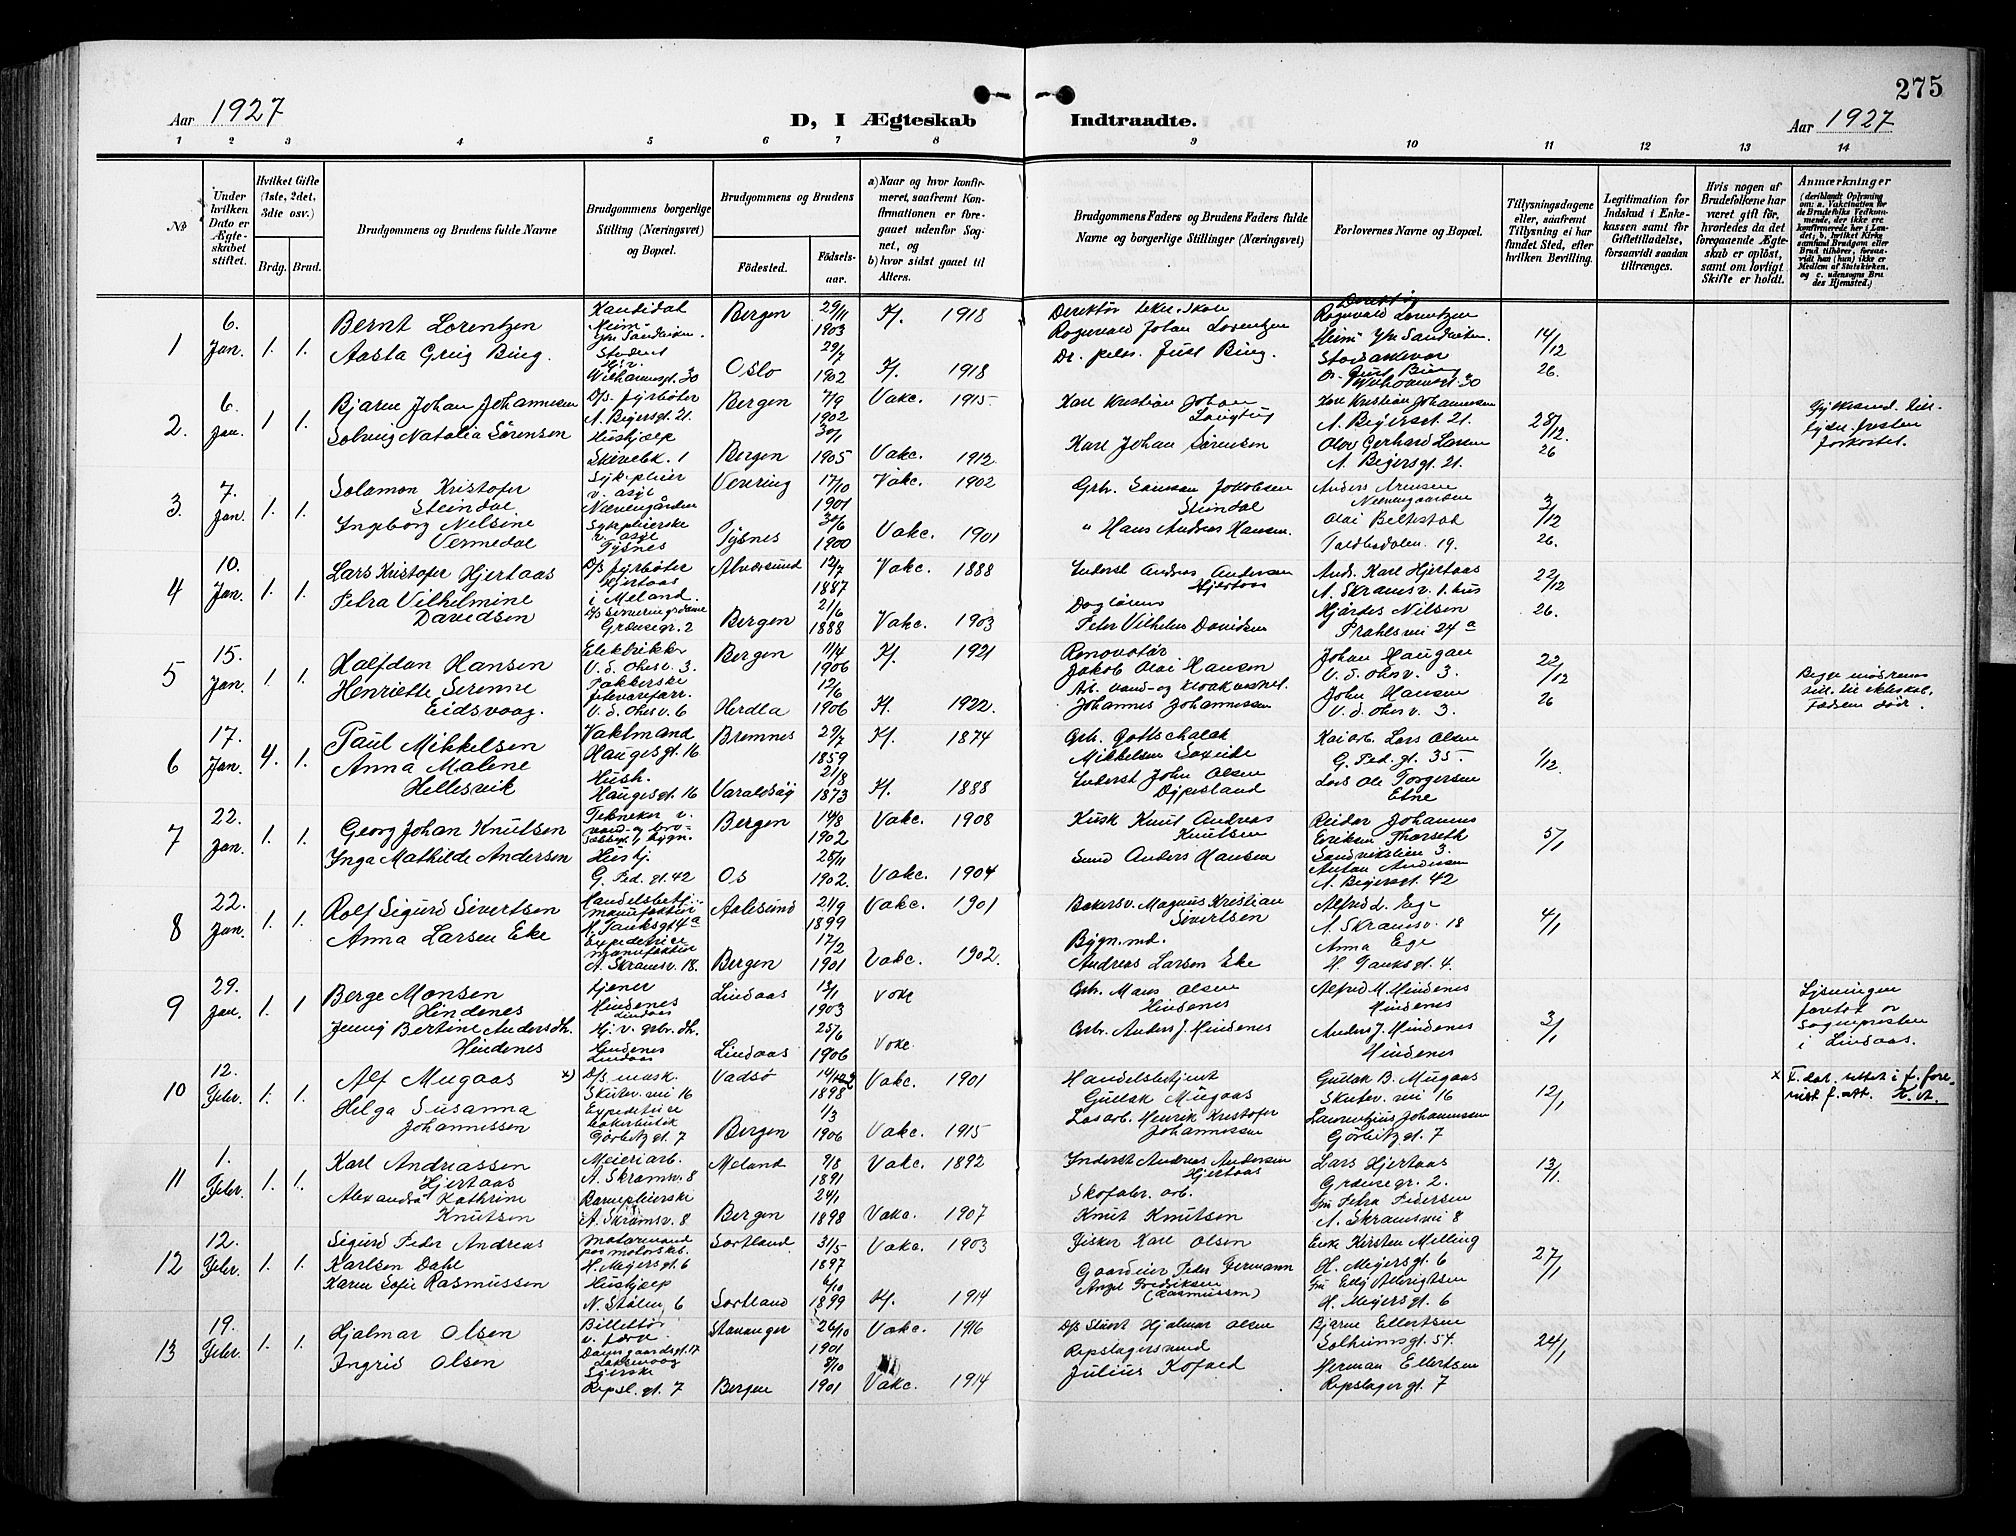 275
Aar 1927
D, I Ægteskab
Indtraadte.
Aar 1927
1 2 3 4 5 6 7 8 9 10 11 12 13 14
No
Under hvilken Dato er Ægteskabet stiftet.
Hvilket Gifte (1ste, 2det, 3die osv.)
Brdg. Brud.
Brudgommens og Brudens fulde Navne
Brudgommens borgerlige Stilling (Næringsvei) og Bopæl.
Brudgommens og Brudens
Fødested. Fødselsaar.
a) Naar og hvor konfirmeret, saafremt Konfirmationen er foregaaet udenfor Sognet, og
b) hvor sidst gaaet til Alters.
Brudgommens Faders og Brudens Faders fulde Navne og borgerlige Stillinger (Næringsvei)
Forlovernes Navne og Bopæl.
Tillysningsdagene eller, saafremt Tillysning ei har fundet Sted, efter hvilken Bevilling.
Legitimation for Indskud i Enkekassen samt for Giftetilladelse, forsaavidt saadan tiltrænges.
Hvis nogen af Brudefolkene har været gift før, hvorledes da det foregaaende Ægteskab er opløst, samt om lovligt Skifte er holdt.
Anmærkninger
(deriblandt Oplysning om: a. Vakcination for de Brudefolks Vedkommende, der ikke ere konfirmerede her i Landet; b. hvilket Kirkesamfund Brudgom eller Brud tilhører, forsaavidt han (hun) ikke er Medlem af Statskirken, og c. udensogns Brudes Hjemsted.)
1 6. Jan. 1. 1.
Bernt Lorentzen
Kandidat
Bergen 29/11 1903 Kf. 1918
Rognvald Johan Lorentzen
Direktør Rognvald Lorentzen
14/12 26.
Aasta Grieg Bing.
Student
Wilhaumsgt. 30
Oslo 29/7 1902 Kf. 1918
Just Bing.
Dr. Just Bing
2. 6. Jan. 1 1.
Bjarne Johan Johannessen
D/s. fyrbøter
A. Beyersgt. 21.
Bergen 7/9 1902 Vakc. 1915.
Karl Kristian Johan
Karl Kristian Johannessen
A. Beyersgt. 21.
28/12. 26
Solveig Natalia Sørensen
Hushjælp
Skivebk. 1
Bergen 30/1 1905 Vakc. 1912.
Karl Johan Sørensen
Olav Gerhard Larsen
A. Beyersgt. 21.
3. 7. Jan. 1. 1.
Solamon Kristofer Steindal
Sykepleier
Vevring 17/10 1901 Vakc. 1902
Grb. Samson Jakobsen Steindal
3/12 26.
Ingeborg Nelsine Vermedal
Sykepleierske
Tysnes
Tysnes 30/6 1900 Vakc. 1901
" Hans Andreas Hansen.
19.
4 10. Jan. 1. 1.
Lars Kristofer Hjertaas
D/s fyrbøter
Hjertaas i Meland.
Alversund 12/7 1887 Vakc. 1888
Inderst Andreas Andersen Hjertaas
And. Karl Hjertaas
A. Skramsv. 1. hus
22/12 26.
Petra Vilhelmine Davidsen
D/s serveringsdame
Grænsegr. 2
Bergen 21/6 1888 Vakc. 1903
Peter Vilhelm Davidsen
Hjørdis Nilsen
Prahlsvei 24a
5 15. Jan. 1. 1.
Halfdan Hansen
Elektriker
V. d. Ohesv. 3.
Bergen 11/4 1906 Kf. 1921
Renovatør
Jakob Olai Hansen
Johan Haugan
V. d. Ohesv. 3.
22/12 26
Henriette Serenne Eidsvaag.
Pakkerske
V. d. Ohesv. 6
Herdla 12/6 1906 Kf. 1922.
Johannes Johannessen
John Hansen
V. d. Ohesv. 3.
Begge mødrenes till. til ekteskab. Fædrene død.
6 17. Jan. 4. 1.
Paul Mikkelsen
Vaktmand
Haugesgt. 16
Bremnes 29/7 1859 Kf. 1874
Grb. Gottschalck Mikkelsen
Kaiarb. Lars Olsen
G. Ped. gt. 35.
1/12.
Anna Malene Hellesvik
Hush.
Haugesgt. 16
Varaldsøy 21/8 1873 Kf. 1888
Inderst John Olsen Dypesland
Lars Ole Torgersen
Etne
7 22. Jan. 1. 1.
Georg Johan Knutsen
Tekniker v.
Bergen 14/8 1902 Vakc. 1908
Kusk Knut Andreas Knutsen
Reidar Johannes Eriksen Thorseth
Sandvikslien 3.
5/1
Inga Mathilde Andersen
Hushj.
G. Ped. gt. 42
Os 25/11 1902. Vakc. 1904
Anders Hansen
Anton Andersen
A. Beyersgt. 42
8 22. Jan. 1. 1.
Rolf Sigurd Sivertsen
Handelsbetj. manufaktur
H. Tanksgt 4a
Aalesund 21/9 1899 Vakc. 1901
Bakersv. Magnus Kristian Sivertsen
Alfred L. Ege
A. Skramsv. 18
4/1
Anna Larsen Eke
Expeditrice manufaktur
A. Skramsv. 18.
Bergen 17/2 1901 Vakc. 1902.
Bygn. md.
Andreas Larsen Eke
Anna Ege
H. Tanksgt. 4.
9 29. Jan. 1. 1
Berge Monsen Hindenes
Tjener
Hindenes Lindaas
Lindaas 13/1 1903 Vakc
Grb. Mons Olsen Hindenes
Alfred M. Hindenes
Hindenes
3/1
Jenny Bertine Andersdtr. Hindenes
Hj. v. grbr. dtr.
Hindenes Lindaas
Lindaas 25/6 1906 Vakc.
Grbr. Anders J. Hindenes
Anders J. Hindenes
Hindenes
Lysningen foretat av Sognepresten i Lindaas.
10 12. Febr. 1. 1.
Alf Mugaas x)
D/s mask.
Skutev. vei 16
Vadsø 14/12 1898 Vakc. 1901
Handelsbetjent
Gullak Mugaas
Gullak B. Mugaas
Skutev. vei 16
12/1
Helga Susanna Johannessen
Expeditrice bakerbutik
Görbitz gt. 7
Bergen 1/3 1906 Vakc. 1915
Losarb. Henrik Kristofer Johannessen
Laurentzius Johannessen
Görbitz gt. 7
x F. dat. rettet i
11 1. Febr. 1. 1.
Karl Andreassen Hjertaas
Meieriarb.
A. Skramsv. 8
Meland 9/8 1891 Vakc. 1892
Inderst Andreas Andersen Hjertaas
Lars Hjertaas
Grænsegr. 2.
13/1.
Alexandra Kathrine Knutsen
Barnepleierske
A. Skramsv. 8
Bergen 24/1 1898 Vakc. 1907
Skofabr. arb.
Knut Knutsen
Fru Petra Pedersen
A. Skramsvei 8
12 12. Febr. 1. 1.
Sigurd Peder Andreas Karlsen Dahl
Motormand paa motorskib.
H. Meyersgt. 6
Sortland 31/5 1897 Vakc. 1903
Fisker Karl Olsen
Enke Kirsten Melling
H. Meyersgt. 6
27/1
Karen Sofie Rasmussen
Hushjælp
N. Stølen 6
Sortland 6/10 1899 Kf. 1914
Gaardeier Peder Hermann Angel Fredriksen (Rasmussen)
Fru Elly Albrigtsen
H. Meyersgt. 6
13 19. Febr. 1. 1.
Hjalmar Olsen
Billettør
Damsgaardsgt. 17
Laksevaag
Stavanger 26/10 1901 Vakc. 1916
Hjalmar Olsen
Bjarne Ellertsen
Solheimsgt. 54.
24/1
Ingrid Olsen
Syerske
Repsl. gt. 7
Bergen 3/10 1901 Vakc. 1914
Repslagersvend
Julius Kofoed
Herman Ellertsen
Repslager gt. 7